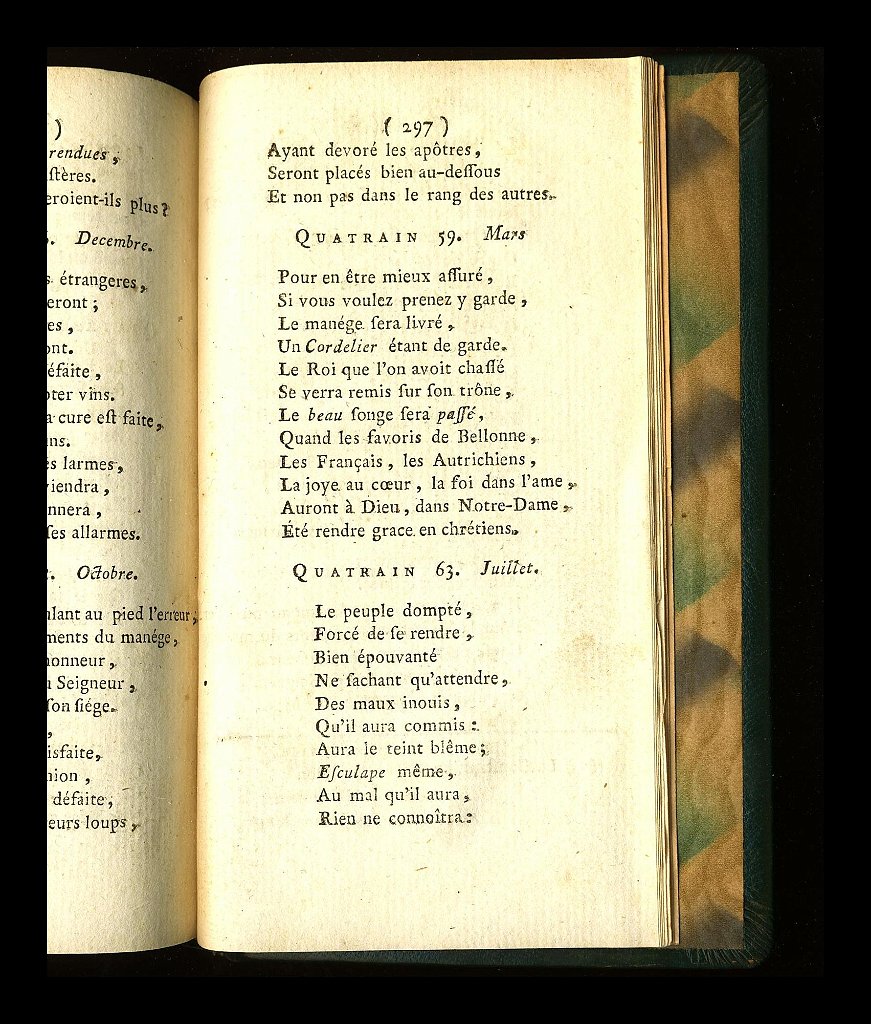 )
rendues ;
ſtères.
eroient-ils plus ?
Decembre.
étrangeres,
eront ;
es ,
ont.
éfaite ,
oter vins.
a cure eſt faite,
ns.
es larmes,
iendra ,
nnera ,
ſes allarmes.
Octobre.
lant au pied l'erreur,
ments du manége,
honneur,
Seigneur,
ſon ſiége.
,
isfaite,
nion ,
défaite,
eurs loups,
( 297 )
Ayant devoré les apôtres,
Seront placés bien au-deſſous
Et non pas dans le rang des autres.
QUATRAIN 59. Mars
Pour en être mieux aſſuré,
Si vous voulez prenez y garde,
Le manége ſera livré,
Un Cordelier étant de garde.
Le Roi que l'on avoit chaſſé
Se verra remis ſur ſon trône,
Le beau ſonge ſera paſſé,
Quand les favoris de Bellonne,
Les Français, les Autrichiens,
La joye au cœur, la foi dans l'ame,
Auront à Dieu, dans Notre-Dame,
Été rendre grace en chrétiens.
QUATRAIN 63. Juillet.
Le peuple dompté,
Forcé de ſe rendre,
Bien épouvanté
Ne ſachant qu'attendre,
Des maux inouis,
Qu'il aura commis :
Aura le teint blême ;
Eſculape même,
Au mal qu'il aura,
Rien ne connoîtra :